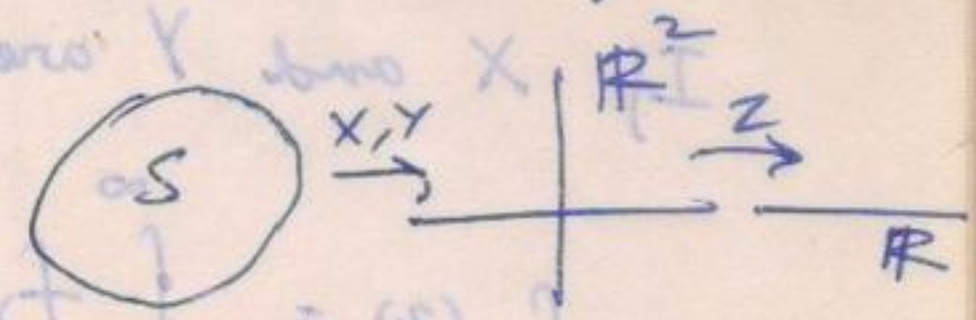 S X,Y ℝ² Z ℝ